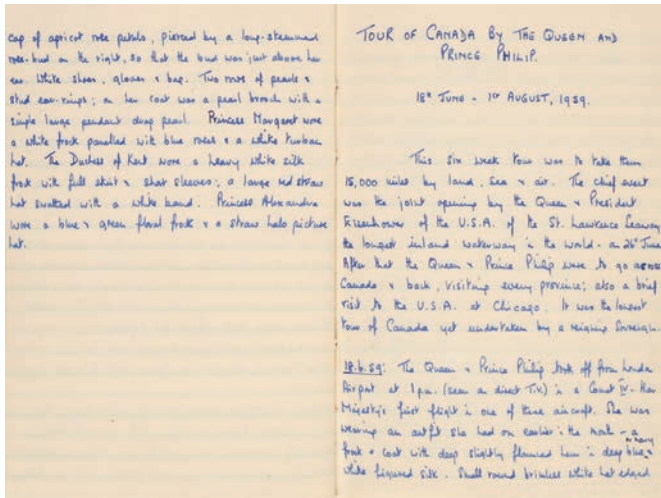 cap of apricot rose petals, pierced by a long-stemmed
rose-bud on the right, so that the bud was just above her
ear. White shoes, gloves & bag. Two rows of pearls &
stud ear-rings; on her coat was a pearl brooch with a
single large pendant drop pearl. Princess Margaret wore
a white frock panelled with blue roses & a white turban
hat. The Duchess of Kent wore a heavy white silk
frock with full skirt & short sleeves; a large red straw
hat swathed with a white band. Princess Alexandra
wore a blue & green floral frock & a straw halo picture
hat.
TOUR OF CANADA BY THE QUEEN AND
PRINCE PHILIP.
18th JUNE - 1st AUGUST, 1959.
This six week tour was to take them
15,000 miles by land, sea & air. The chief event
was the joint opening by the Queen & President
Eisenhower of the U.S.A. of the St. Lawrence Seaway
the longest inland waterway in the world - on 26th June
After that the Queen & Prince Philip were to go across
Canada & back, visiting every province; also a brief
visit to the U.S.A. at Chicago. It was the longest
tour of Canada yet undertaken by a reigning Sovereign.
18.6.59: The Queen & Prince Philip took off from London
Airport at 1 p.m. (seen on direct T.V.) in a Comet IV - Her
Majesty's first flight in one of these aircraft. She was
wearing an outfit she had on earlier in the month - a
frock & coat with deep slightly flounced hem in deep blue &
white figured silk. Small round brimless white hat edged